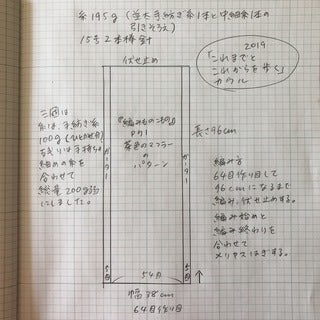 糸195g(並太手紡ぎ糸1本と中細糸1本の
引きそろえ)
15号2本棒針
2019
「これまでと
これからを歩く」
カウル
伏せ止め
三國は
糸は、手紡ぎ糸
100g
古い手持ちの
細めの糸を
合わせて
総量200g弱
にしました。
ガーター
『編みものこもの』
P41
茶色のマフラー
の
パターン
ガーター
長さ96cm
編み方
64目作り目して
96cmになるまで
編み、伏せ止めする。
編み始めと
編み終わりを
合わせて
メリヤスはぎする。
5目
54目
5目
幅38cm
64目作り目